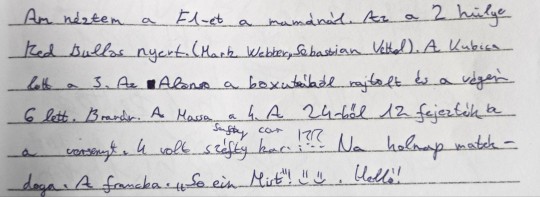 Am néztem a F1-et a mamánál. Az a 2 hülye
Red Bullos nyert. (Mark Webber, Sebastian Vettel). A Kubica
lett a 3. Az Alonso a boxutcából rajtolt és a végén
6 lett. Bravúr. A Massa a 4. A 24-ből 12 fejezték b
Safty car
a versenyt. 4 volt széfty kar. !?!? Na holnap matek-
doga. A francba. „So ein Mist"! Helló!